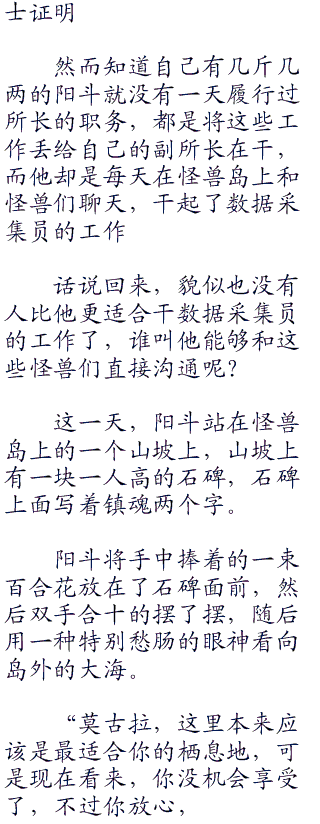 士证明
然而知道自己有几斤几
两的阳斗就没有一天履行过
所长的职务，都是将这些工
作丢给自己的副所长在干，
而他却是每天在怪兽岛上和
怪兽们聊天，干起了数据采
集员的工作
话说回来，貌似也没有
人比他更适合干数据采集员
的工作了，谁叫他能够和这
些怪兽们直接沟通呢？
这一天，阳斗站在怪兽
岛上的一个山坡上，山坡上
有一块一人高的石碑，石碑
上面写着镇魂两个字。
阳斗将手中捧着的一束
百合花放在了石碑面前，然
后双手合十的摆了摆，随后
用一种特别愁肠的眼神看向
岛外的大海。
“莫古拉，这里本来应
该是最适合你的栖息地，可
是现在看来，你没机会享受
了，不过你放心，